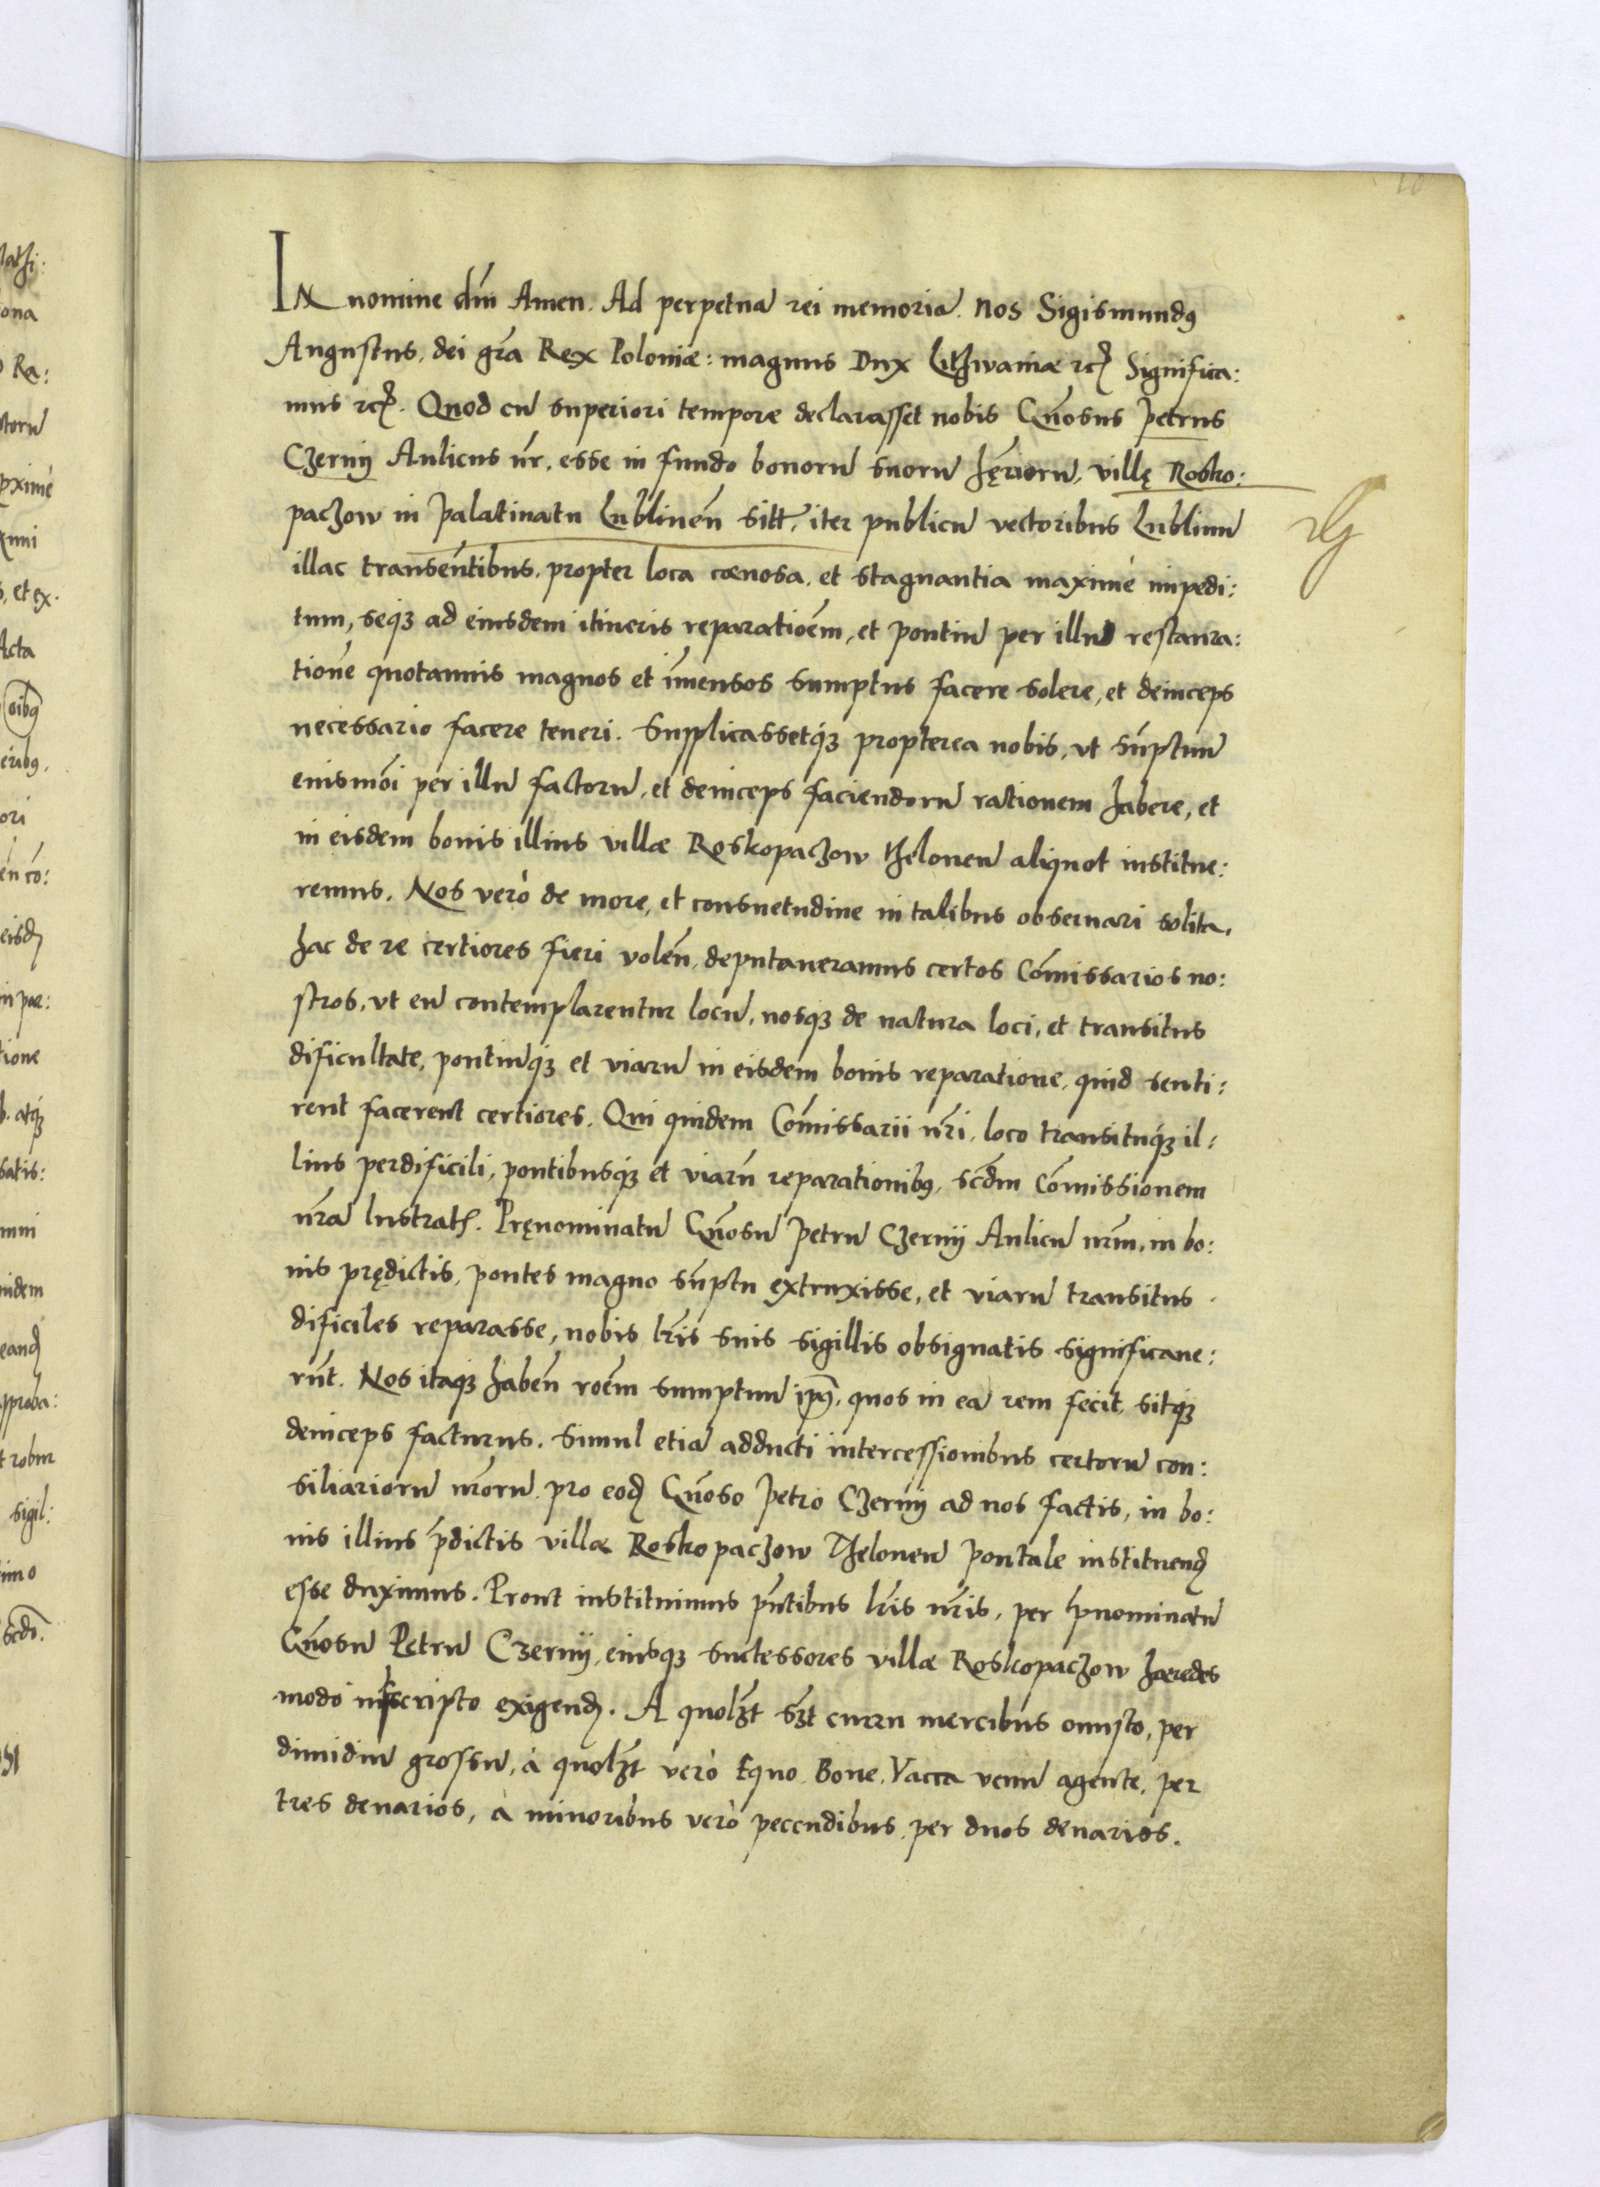 10
IN nomine dm̄ Amen. Ad perpetuā rei memoriā. Nos Sigismundꝰ
Augustus, dei gr̄a Rex Poloniæ: magnus Dux Lithwaniæ rcꝭ Significa:
mus rcꝭ. Quod cū superiori tempore declarasset nobis Gn̄osus Petrus
Czernij Aulicus nr̄, esse in fundo bonorū suorū hęr̄iorū, villę Rosko:
paczow in Palatinatu Lublineñ sitt̄, iter publicū vectoribus Lublinū
illac transeūtibus, propter loca cænosa, et stagnantia maximè impedi:
tum, seqꝫ ad eiusdem itineris reparatioēm, et pontiū per illud restaura:
tionē quotannis magnos et im̄ensos sumptus facere solere, et deinceps
necessario facere teneri. Supplicassetqꝫ propterea nobis, vt sūptuū
eiusmōi per illū factorū, et deinceps faciendorū rationem habere, et
in eisdem bonis illius villæ Roskopaczow theloneū aliquot institue:
remus. Nos verò de more, et consuetudine in talibus obseruari solita,
hac de re certiores fieri voleñ, deputaueramus certos Com̄issarios no:
stros, vt eū contemplarentur locū, nosqꝫ de natura loci, et transitus
dificultate, pontiūqꝫ et viarū in eisdem bonis reparatione, quid senti:
rent facerent certiores. Qui quidem Com̄issarii nr̄i, loco transituqꝫ il:
lius perdificili, pontibusqꝫ et viarū reparationibꝰ, scd̄m Com̄issionem
nr̄ā lustratꝭ. Pręnominatū Gn̄osū Petrū Czernij Aulicū nr̄m, in bo:
nis prędictis, pontes magno sūptu extruxisse, et viarū transitus
dificiles reparasse, nobis lr̄is suis sigillis obsignatis significaue:
rūt. Nos itaqꝫ habeñ roēm sumptuū ip̄iꝰ, quos in eā rem fecit, sitqꝫ
deinceps facturus. Simul etiā adducti intercessionibus certorū con:
siliariorū nr̄orū pro eodꝭ Gn̄oso Petro Czernij ad nos factis, in bo:
nis illius p̄dictis villæ Roskopaczow Theloneū Pontale instituendꝭ
esse duximus. Prout instituimus pn̄tibus lr̄is nr̄is, per p̄nominatū
Gn̄osū Petrū Czernij, eiusqꝫ successores villæ Roskopaczow hæredes
modo infscripto exigendꝭ. A quolꝫt sꝫt curru mercibus onusto, per
dimidiū grossū, à quolꝫt verò Equo, Boue, Vacca venū agente, per
tres denarios, à minoribus verò peccudibus, per duos denarios.